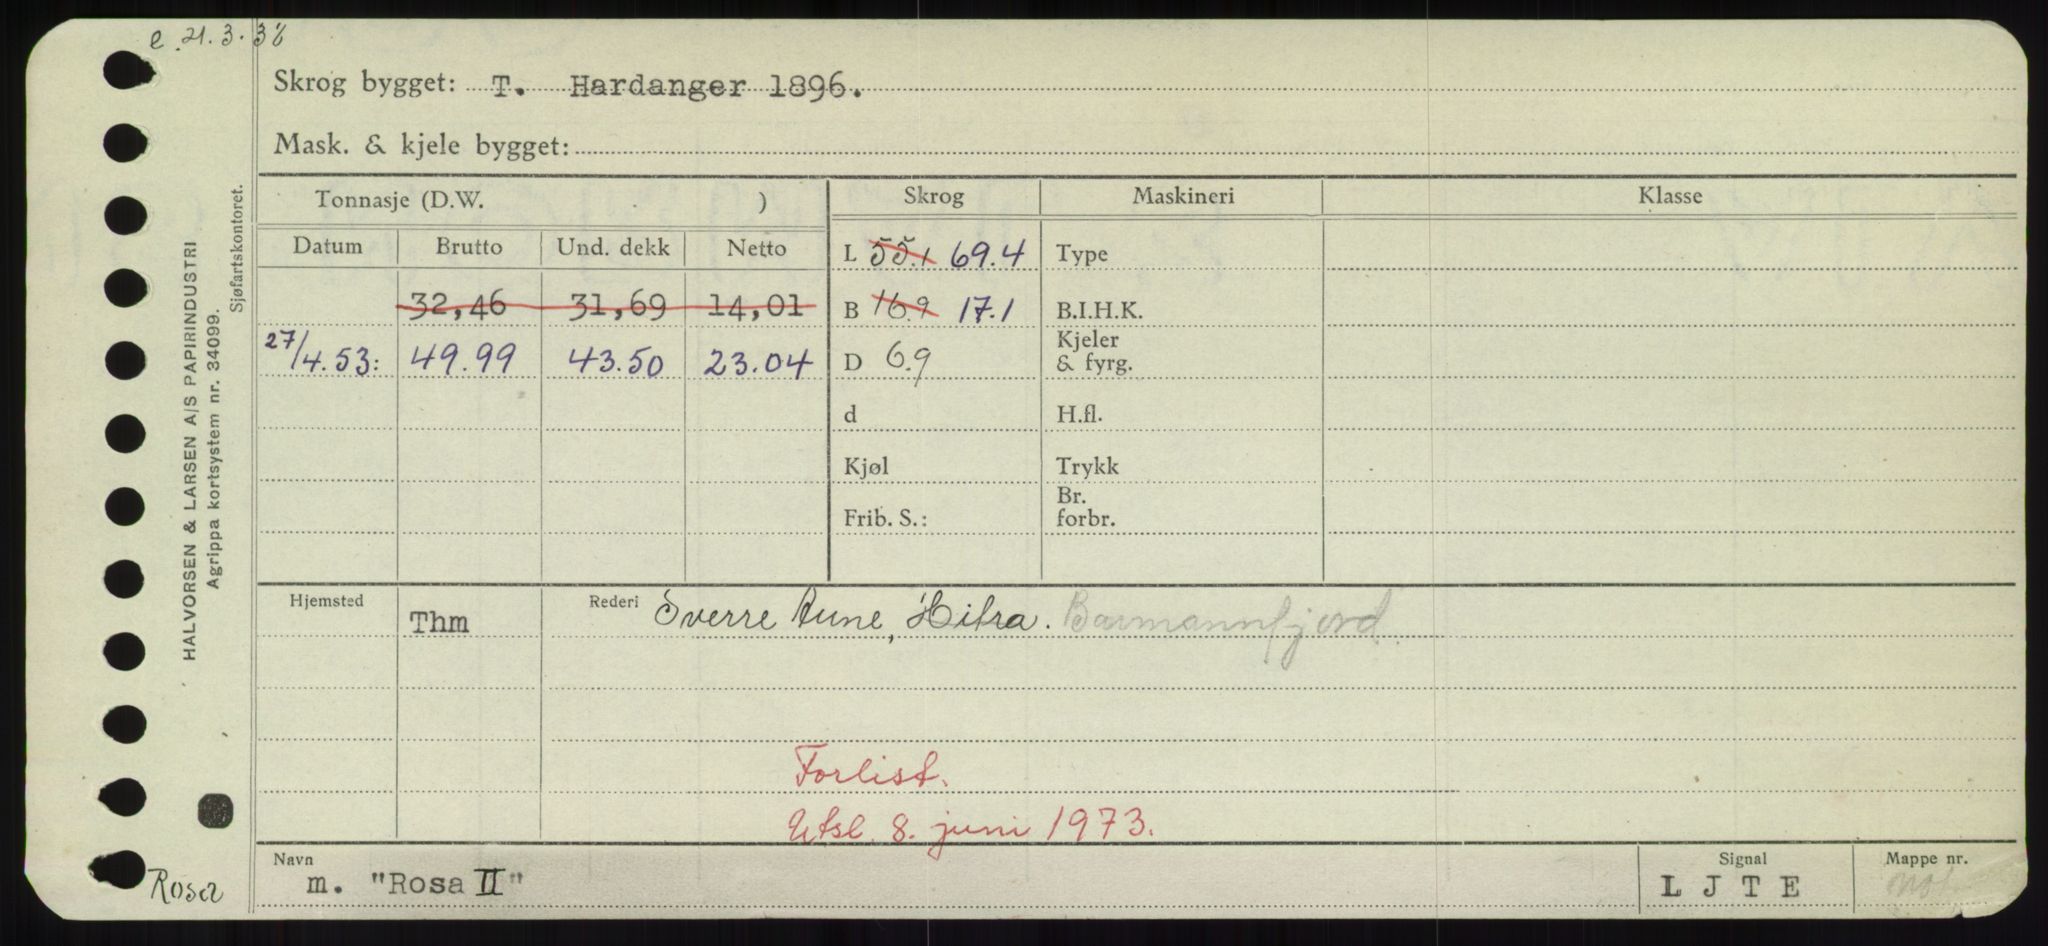 e. 21.3.38
Skrog bygget: T. Hardanger 1896.
Mask. & kjele bygget:
Tonnasje (D.W. ) Skrog Maskineri Klasse
Datum Brutto Und. dekk Netto L 55.1 69.4 Type
32,46 31,69 14,01 B 16.9 17.1 B.I.H.K.
27/4.53: 49.99 43.50 23.04 D 6.9 Kjeler & fyrg.
d H.fl.
Kjøl Trykk
Frib. S.: Br. forbr.
Hjemsted Thm Rederi Sverre Aune, Hitra. Barmannfjord
Forlist.
Utsl. 8. juni 1973.
Navn Signal Mappe nr.
m. "Rosa II" L J T E
Rosa
HALVORSEN & LARSEN A/S PAPIRINDUSTRI
Agrippa kortsystem nr. 34099.
Sjøfartskontoret.